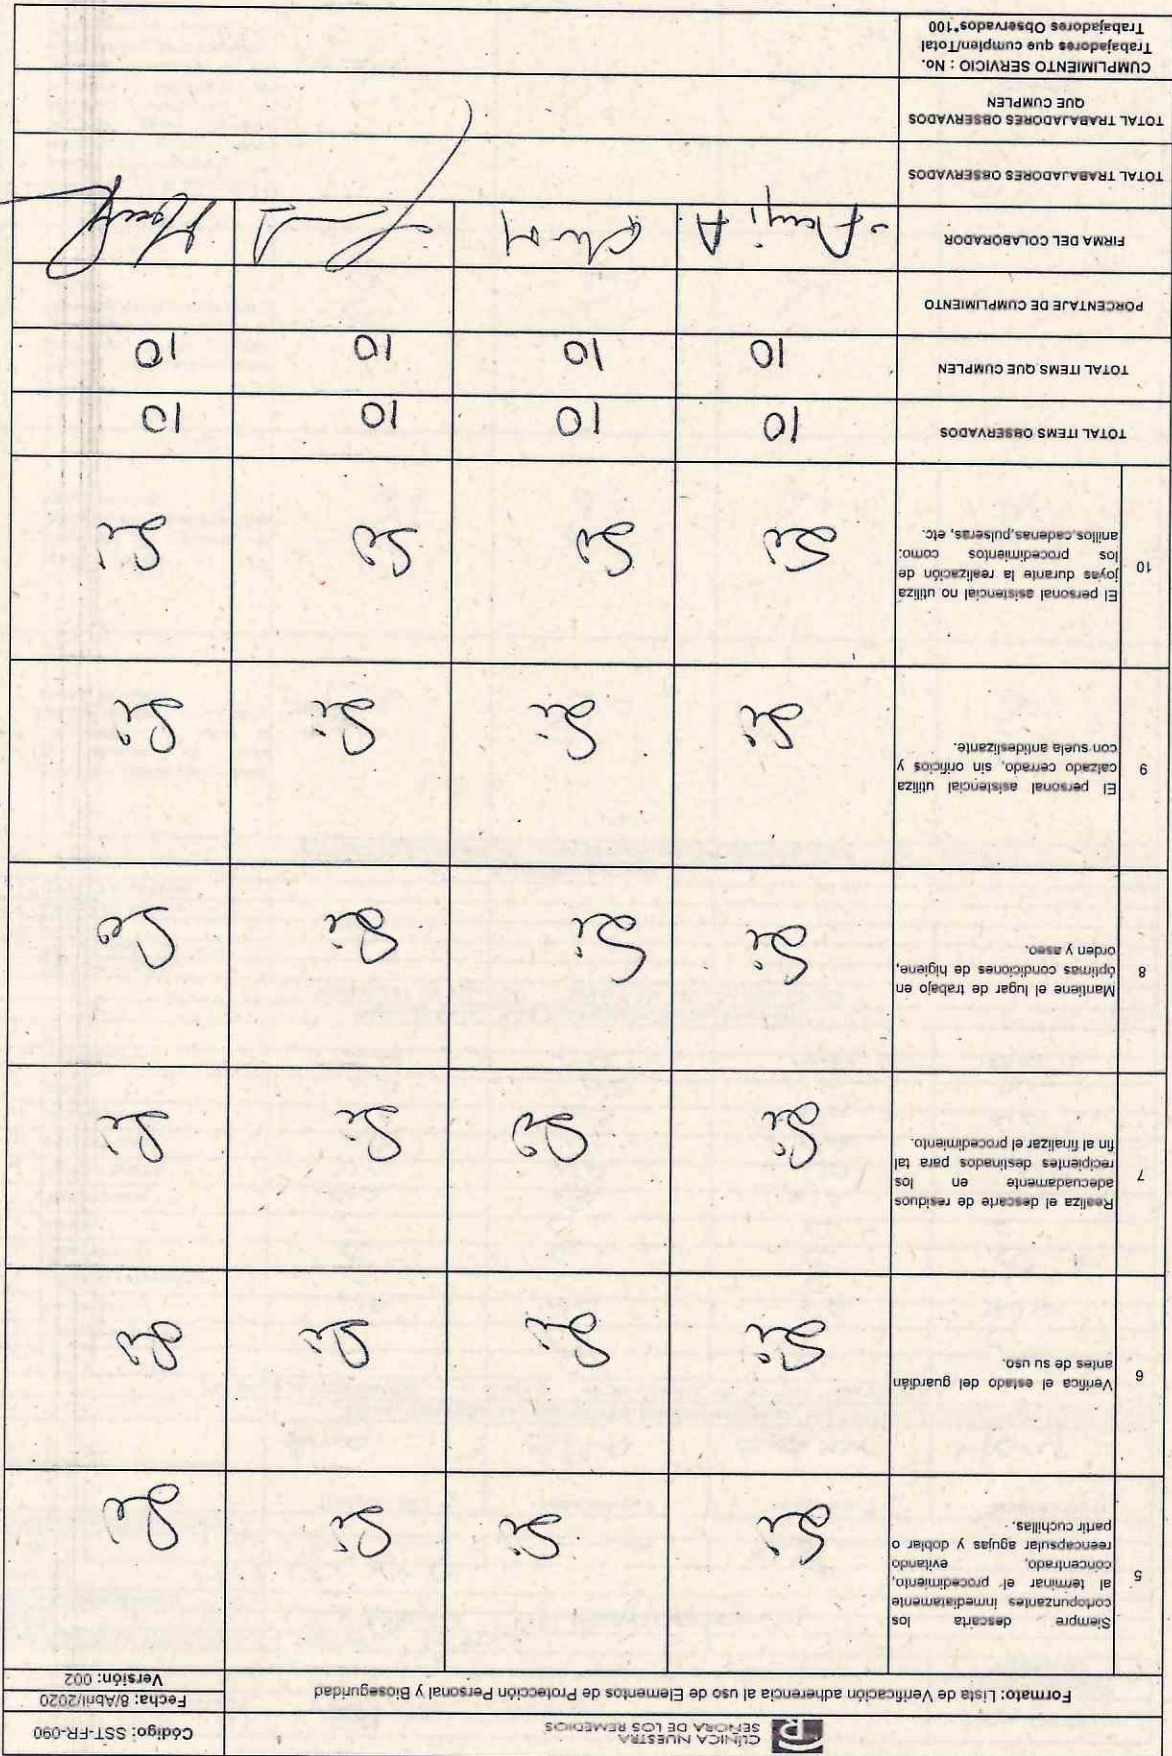 CLÍNICA NUESTRA
SEÑORA DE LOS REMEDIOS
Código: SST-FR-090
Formato: Lista de Verificación adherencia al uso de Elementos de Protección Personal y Bioseguridad
Fecha: 8/Abril/2020
Versión: 002
5
Siempre descarta los
cortopunzantes inmediatamente
al terminar el procedimiento,
concentrado, evitando
reencapsular agujas y doblar o
partir cuchillas.
Si Si Si Si
6
Verifica el estado del guardián
antes de su uso.
Si Si Si Si
7
Realiza el descarte de residuos
adecuadamente en los
recipientes destinados para tal
fin al finalizar el procedimiento.
Si Si Si Si
8
Mantiene el lugar de trabajo en
óptimas condiciones de higiene,
orden y aseo.
Si Si Si Si
9
El personal asistencial utiliza
calzado cerrado, sin orificios y
con suela antideslizante.
Si Si Si Si
10
El personal asistencial no utiliza
joyas durante la realización de
los procedimientos como:
anillos,cadenas,pulseras, etc.
Si Si Si Si
TOTAL ITEMS OBSERVADOS
10 10 10 10
TOTAL ITEMS QUE CUMPLEN
10 10 10 10
PORCENTAJE DE CUMPLIMIENTO
FIRMA DEL COLABORADOR
TOTAL TRABAJADORES OBSERVADOS
TOTAL TRABAJADORES OBSERVADOS
QUE CUMPLEN
CUMPLIMIENTO SERVICIO : No.
Trabajadores que cumplen/Total
Trabajadores Observados*100